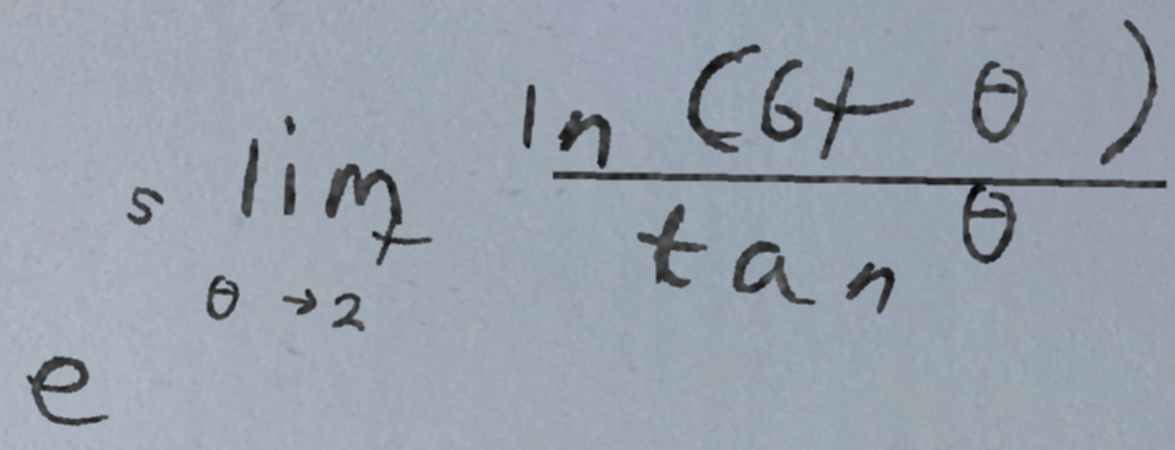 e^{s \lim_{\theta \to 2^+} \frac{\ln (6 + \theta)}{\tan \theta}}